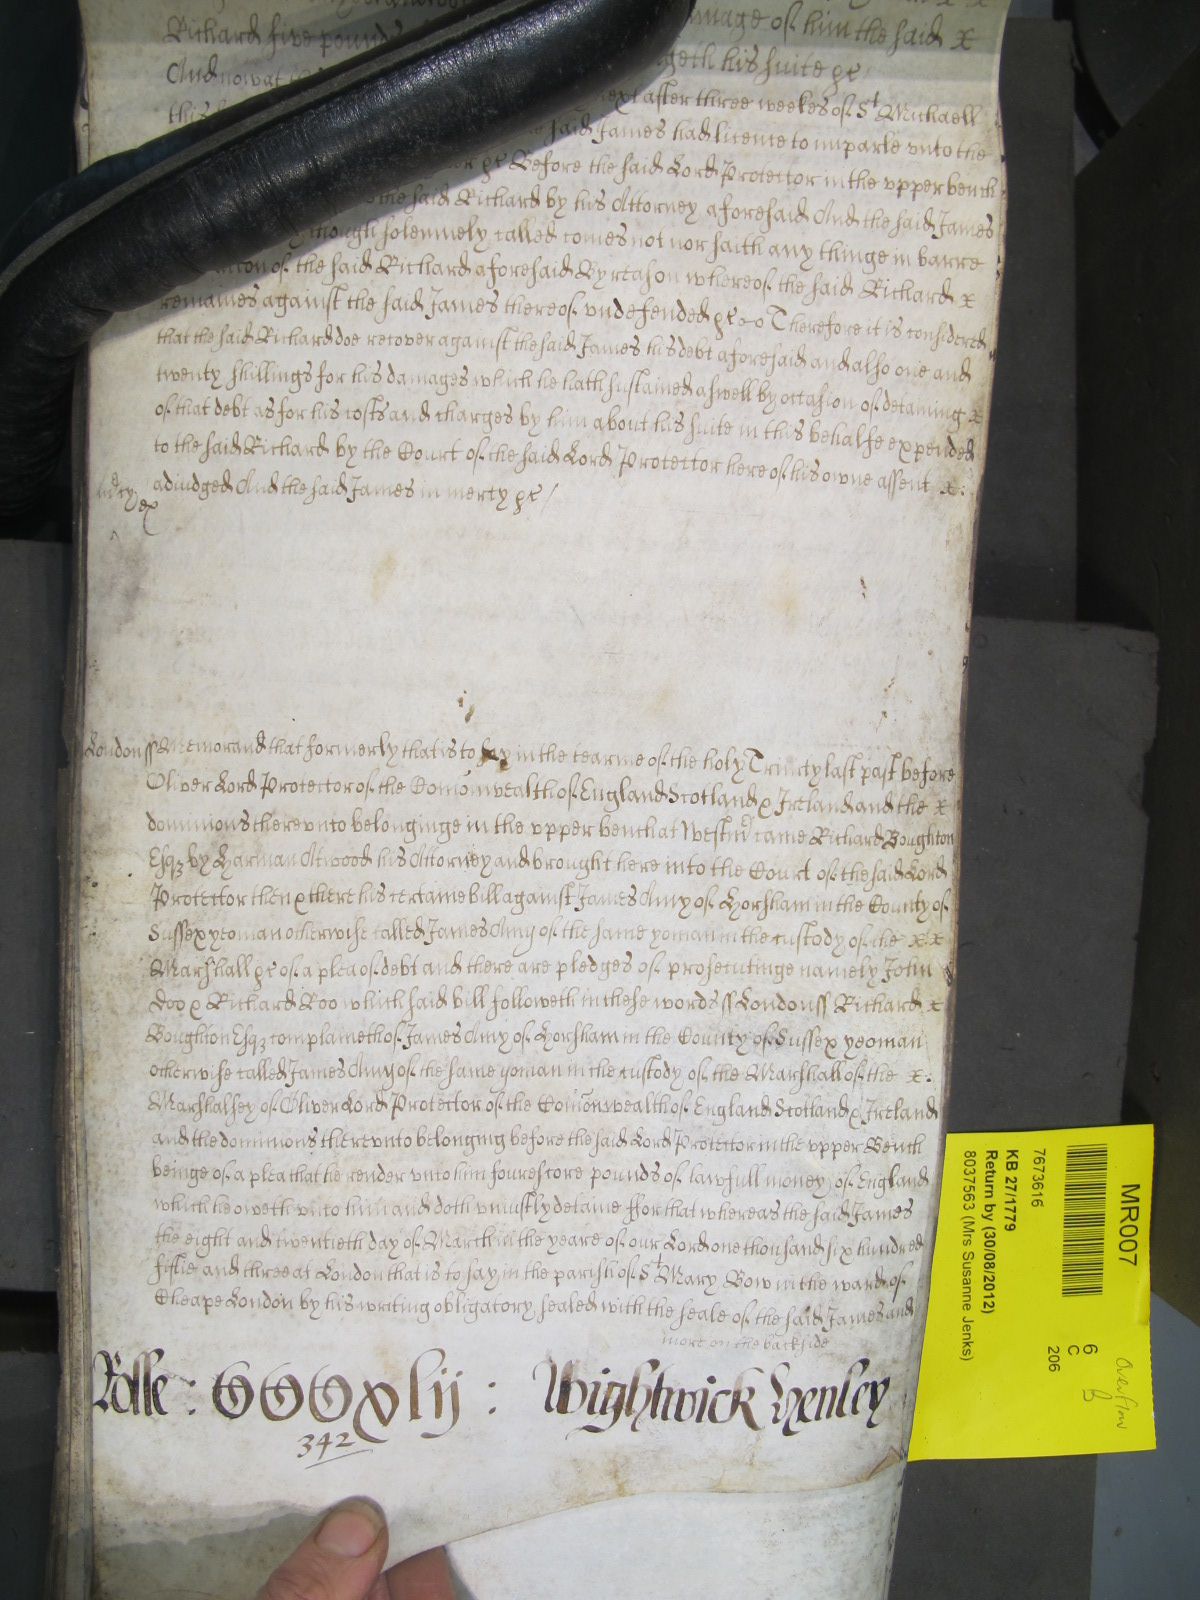 Richard five pounds mage of him the said x
And now at geth his suite &c/
this next after three weekes of St Michaell
said James had licence to imparle unto the
&c Before the said Lord Protector in the upper bench
the said Richard by his Attorney aforesaid And the said James
though solemnely called comes not nor saith any thinge in barre
of the said Richard aforesaid By reason whereof the said Richard x
remaines against the said James thereof undefended &c Therefore it is considered
that the said Richard doe recover against the said James his debt aforesaid and also one and
twenty shillings for his damages which he hath sustained aswell by occasion of detaining x
of that debt as for his costs and charges by him about his suite in this behalfe expended
to the said Richard by the Court of the said Lord Protector here of his owne assent x
adiudged And the said James in mercy &c/
Londonss Memorand that formerly that is to say in the tearme of the holy Trinity last past before
Oliver Lord Protector of the Comonwealth of England Scotland & Ireland and the x
dominions thereunto belonginge in the upper bench at Westmr came Richard Boughton
Esqz by Harman Atwood his Attorney and brought here into the Court of the said Lord
Protector then & there his certaine bill against James Amy of Horsham in the County of
Sussex yeoman otherwise called James Amy of the same yoman in the custody of the x x
Marshall &c of a plea of debt and there are pledges of prosecutinge namely John
Doo & Richard Roo which said bill followeth in these words ss Londonss Richard x
Boughton Esqz complaineth of James Amy of Horsham in the County of Sussex yeoman
otherwise called James Amy of the same yoman in the custody of the Marshall of the x
Marshalsey of Oliver Lord Protector of the Comonwealth of England Scotland & Ireland
and the dominions thereunto belonging before the said Lord Protector in the upper Bench
beinge of a plea that he render unto him fourescore pounds of lawfull money of England
which he oweth unto him and doth uniustly detaine ffor that whereas the said James
the eight and twentieth day of March in the yeare of our Lord one thousand six hundred
fiftie and three at London that is to say in the parish of St Mary Bow in the ward of
Cheape London by his writing obligatory sealed with the seale of the said James and
more on the backside
Rolle : CCCxlij : Wightwick Henley
342
MR007
7673616
KB 27/1779
Return by (30/08/2012)
8037563 (Mrs Susanne Jenks)
6
C
206
Overflow
B